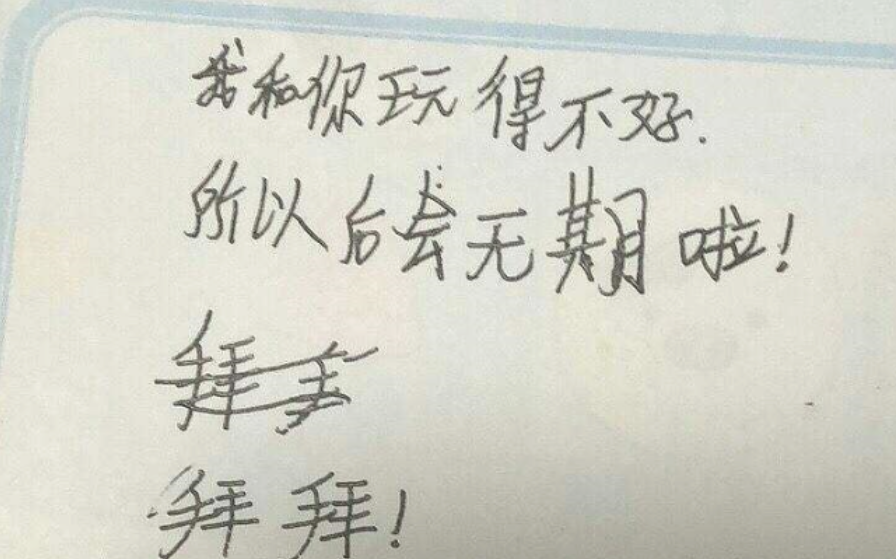 我和你玩得不好.
所以后会无期啦!
拜
拜拜!